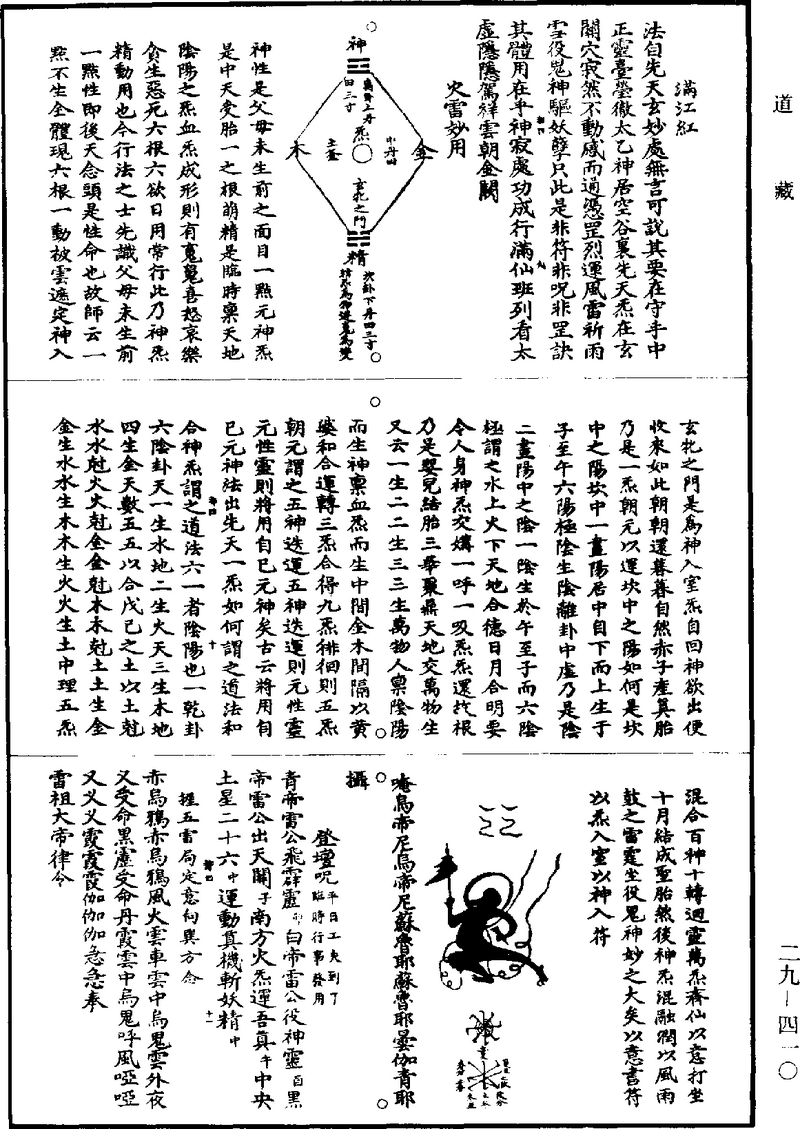 道藏
滿江紅
法自先天玄妙處無言可說其要在守乎中
正靈臺瑩徹太乙神居空谷裏先天炁在玄
關穴寂然不動感而通憑罡烈運風雷祈雨
雪役鬼神驅妖孽只此是非符非呪非罡訣
其體用在乎神寂處功成行滿仙班列看太
虛隱隱駕祥雲朝金闕
火雷妙用
神
離卦上丹
田三寸
炁
中丹田
金
木
土釜
玄牝之門
精
坎卦下丹田三寸
神性是父母未生前之面目一點元神炁
是中天受胎一之根萌精是臨時稟天地
陰陽之炁血炁成形則有鬼魄喜怒哀樂
貪生惡死六根六欲日用常行此乃神炁
精動用也今行法之士先識父母未生前
一點性即後天念頭是性命也故師云一
點不生全體現六根一動被雲遮定神入
玄牝之門是為神入室炁自回神欲出便
收來如此朝朝還暮暮自然赤子產真胎
乃是一炁朝元以運坎中之陽如何是坎
中之陽坎中一畫陽居中自下而上生于
子至午六陽極陰生陰離卦中虛乃是陰
二畫陽中之陰一陰生於午至子而六陰
極謂之水上火下天地合德日月合明要
令人身神炁交媾一呼一吸炁炁還找根
乃是嬰兒結胎三華聚鼎天地交萬物生
又云一生二二生三三生萬物人稟陰陽
而生神稟血炁而生中間金木間隔以黃
婆和合運轉三炁合得九炁徘徊則五炁
朝元謂之五神迭運五神迭運則元性靈
元性靈則將用自已元神矣古云將用自
已元神法出先天一炁如何謂之道法和
合神炁謂之道法六一者陰陽也一乾卦
六陰卦天一生水地二生火天三生木地
四生金天數五五以合戊已之土以土尅
水水尅火火尅金金尅木木尅土土生金
金生水水生木木生火火生土中理五炁
混合百神十轉迴靈萬炁齊仙以意打坐
十月結成聖胎然後神炁混融潤以風雨
鼓之雷霆坐役鬼神妙之大矣以意書符
以炁入室以神入符
唵烏帝尼烏帝尼蘇魯耶蘇魯耶曇伽青耶
攝
登壇呪平日工夫到了臨時行事發用
青帝雷公飛霹靂卯白帝雷公役神靈酉黑
帝雷公出天關子南方火炁運吾真午中央
土星二十六中運動真機斬妖精中
握五雷局定意向巽方念
赤烏鴉赤烏鴉風火雲車雲中烏鬼雲外夜
叉受命黑虛受命丹霞雲中烏鬼呼風啞啞
叉叉叉霞霞霞伽伽伽急急奉
雷祖大帝律令
二九—四一〇